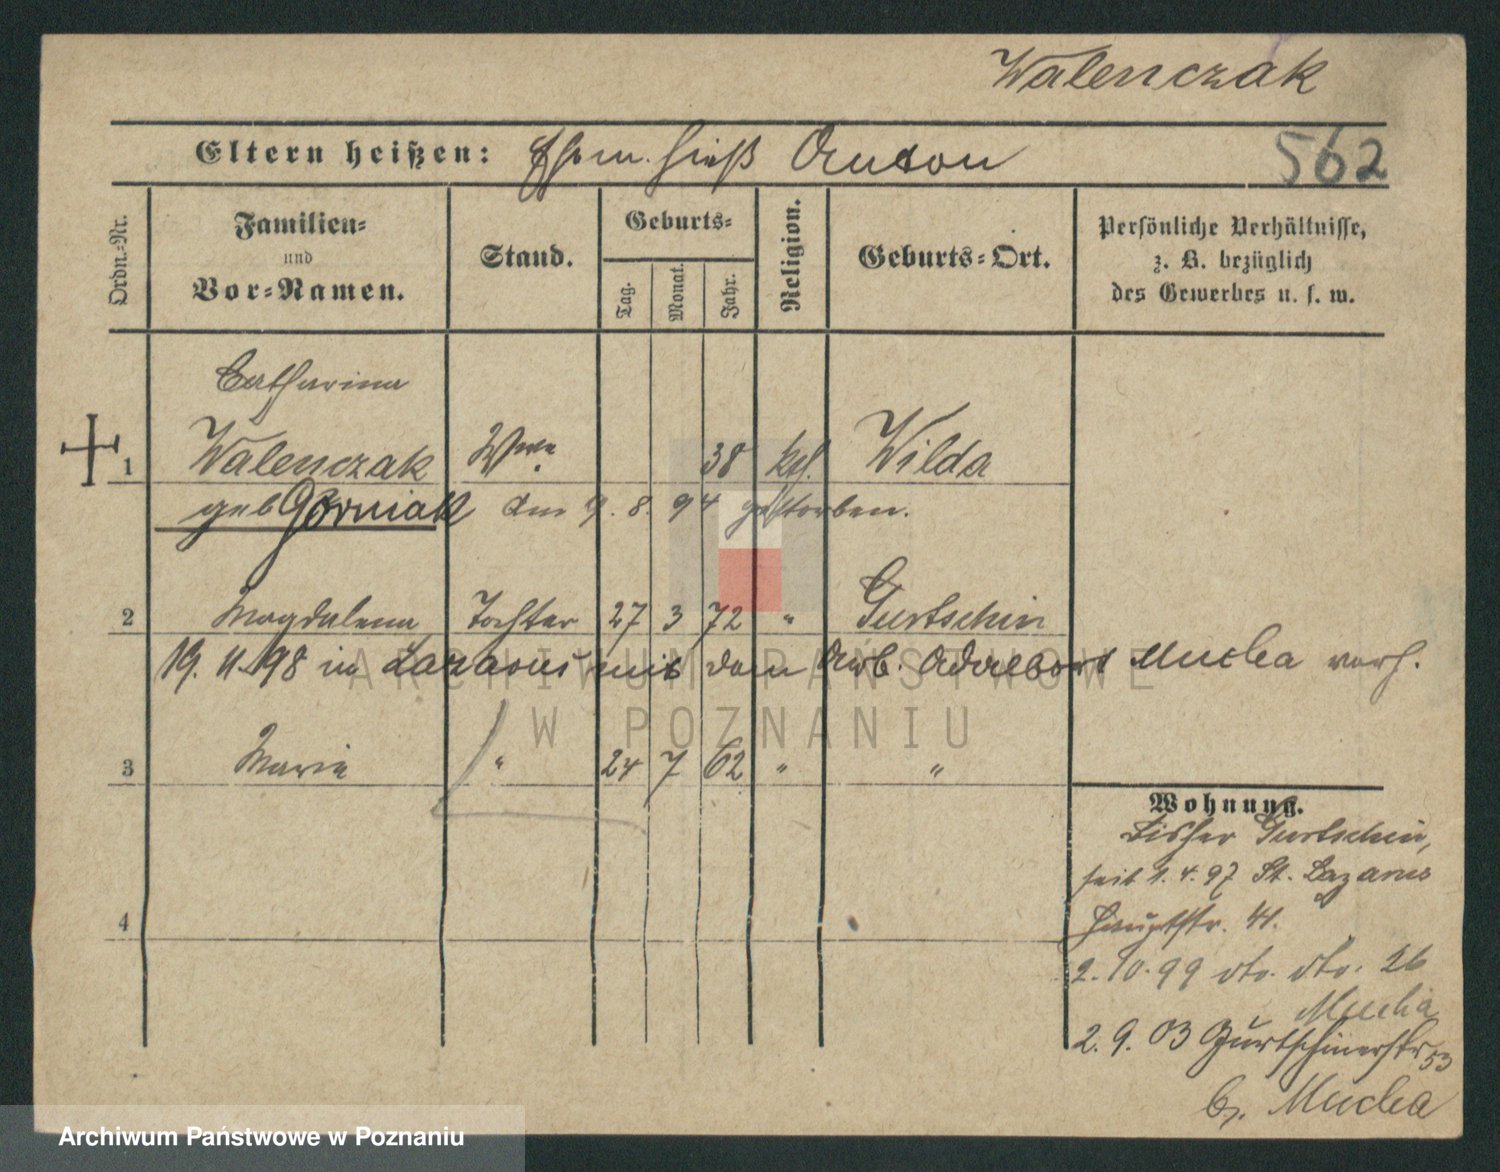 Walenczak
Eltern heißen: Ehem. hieß Anton
562
Ordn.-Nr.
Familien-
und
Vor-Namen.
Stand.
Geburts-
Tag.
Monat.
Jahr.
Religion.
Geburts-Ort.
Persönliche Verhältnisse,
z. B. bezüglich
des Gewerbes u. s. w.
Catharina
1 Walenczak Wwe. 38 kth. Wilda
geb Gorniak am 9. 8. 94 gestorben.
2 Magdalena Tochter 27 3 72 " Gurtschin
19. 11. 98 in Lazarus mit dem Arb. Adalbert Mucha verh.
3 Marie " 24 7 62 " "
Wohnung.
Bisher Gurtschin,
seit 1. 4. 97 St. Lazarus
Hauptstr. 41.
4
2. 10. 99 dto. dto. 26
Mucha
2. 9. 03 Gurtschinerstr 53
b. Mucha
ARCHIWUM PAŃSTWOWE
W POZNANIU
Archiwum Państwowe w Poznaniu